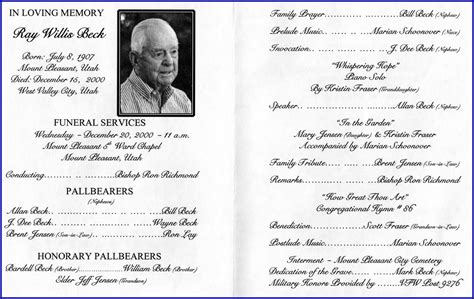 IN LOVING MEMORY
Ray Willis Beck
Born: July 8, 1907
Mount Pleasant, Utah
Died: December 15, 2000
West Valley City, Utah
FUNERAL SERVICES
Wednesday ~ December 20, 2000 ~ 11 a.m.
Mount Pleasant 6th Ward Chapel
Mount Pleasant, Utah
Conducting..............................Bishop Ron Richmond
PALLBEARERS
(Nephews)
Allan Beck..............................Bill Beck
J. Dee Beck..............................Wayne Beck
Brent Jensen (Son-in-Law)..............................Ron Lay
HONORARY PALLBEARERS
Bardell Beck (Brother)....................William Beck (Brother)
Elder Jeff Jensen (Grandson)
Family Prayer..............................Bill Beck (Nephew)
Prelude Music..............................Marian Schoonover (Niece)
Invocation..............................J. Dee Beck (Nephew)
"Whispering Hope"
Piano Solo
By Kristin Fraser (Granddaughter)
Speaker..............................Allan Beck (Nephew)
"In the Garden"
Mary Jensen (Daughter) & Kristin Fraser
Accompanied by Marian Schoonover
Family Tribute....................Brent Jensen (Son-in-Law)
Remarks..............................Bishop Ron Richmond
"How Great Thou Art"
Congregational Hymn #86
Benediction....................Scott Fraser (Grandson-in-Law)
Postlude Music..............................Marian Schoonover
Interment ~ Mount Pleasant City Cemetery
Dedication of the Grave....................Mark Beck (Nephew)
Military Honors Provided by....................VFW Post 9276